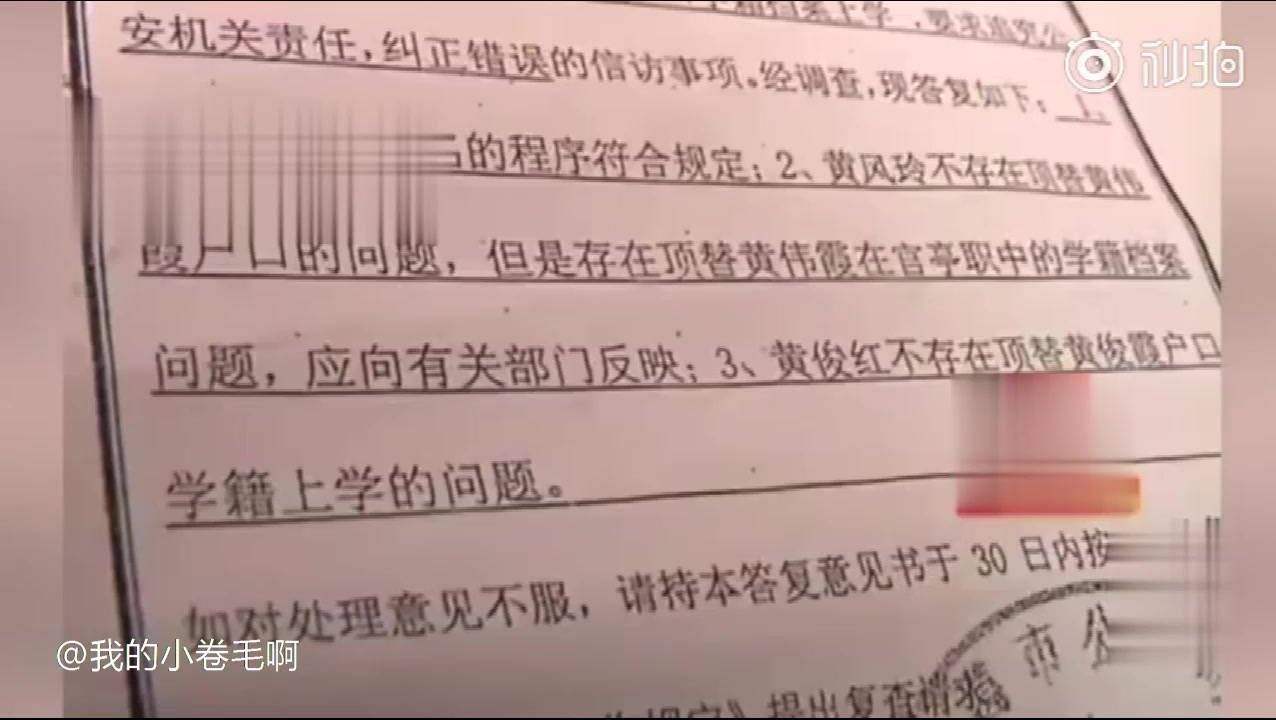 档案上学，要求追究公
秒拍
安机关责任，纠正错误的信访事项。经调查，现答复如下：1、
的程序符合规定；2、黄风玲不存在顶替黄伟
霞户口的问题，但是存在顶替黄伟霞在官亭职中的学籍档案
问题，应向有关部门反映；3、黄俊红不存在顶替黄俊霞户口
学籍上学的问题。
如对处理意见不服，请持本答复意见书于 30 日内按
市公
@我的小卷毛啊
规定》提出复查请求